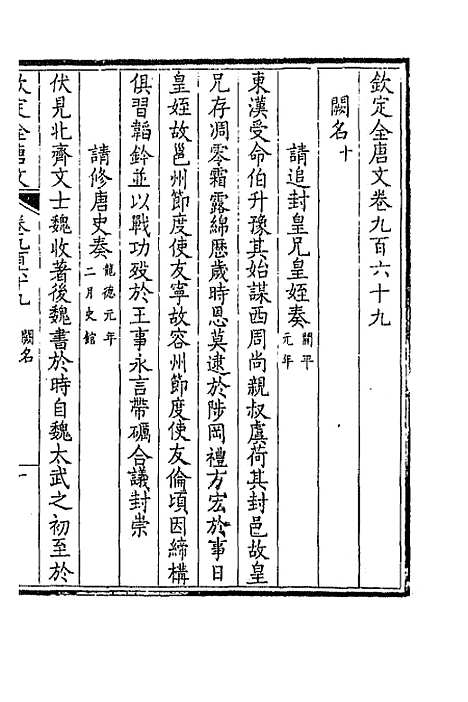 欽定全唐文卷九百六十九
闕名十
請追封皇兄皇姪奏開平元年
東漢受命伯升豫其始謀西周尚親叔虞荷其封邑故皇
兄存凋零霜露綿歷歲時恩莫逮於陟岡禮方宏於事日
皇姪故邕州節度使友寧故容州節度使友倫頃因締構
俱習韜鈐並以戰功歿於王事永言帶礪合議封崇
請修唐史奏龍德元年二月史館
伏見北齊文士魏收著後魏書於時自魏太武之初至於
欽定全唐文
卷九百六十九
闕名
一